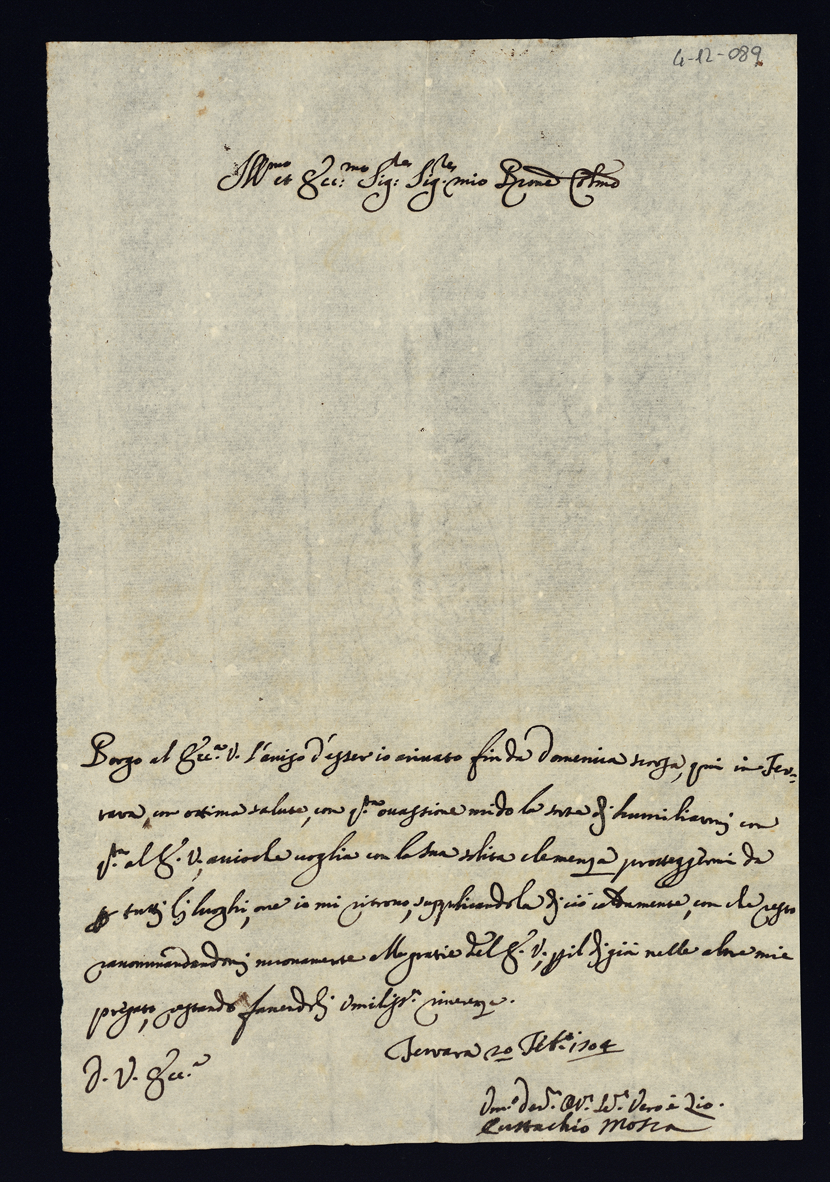 4-12-089
Ill.mo et Ecc.mo Sig.re Sig.re mio P.rone Col.mo
Porgo al Ecc.a V. l'auiso d'esser io ariuato fin da Domenica scorsa, qui in Fer-
rara, con ottima salute, con q.sta occassione mi do la sorte di humiliarmi con
q.sta al E. V. acciochè uoglia con la sua solita clemenza proteggermi da
p tutti li luoghi, oue io mi ritrouo, supplicandola di ciò, con che resto
racommandandomi nuouamente alle gratie del E. V. p il di già nelle altre mie
pregato, restando facendoli umiliss.a riuerenza.
D. V. Ecc.a
Ferrara 20 Feb.o 1704
Um.o Deu.o Ser.e Vero è
Eustachio Mosca